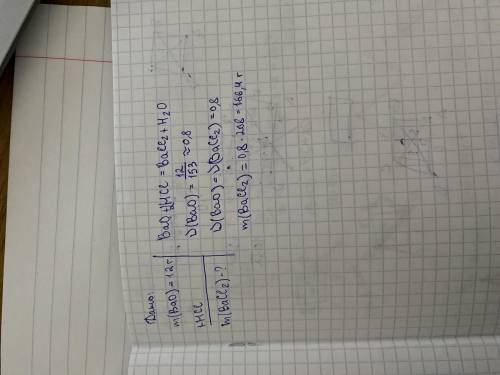 Дано:
m(BaO) = 12 г
+HCl
m(BaCl₂) - ?
BaO + 2HCl = BaCl₂ + H₂O
ν(BaO) = 12/153 ≈ 0,8
ν(BaO) = ν(BaCl₂) = 0,8
m(BaCl₂) = 0,8 · 208 = 166,4 г